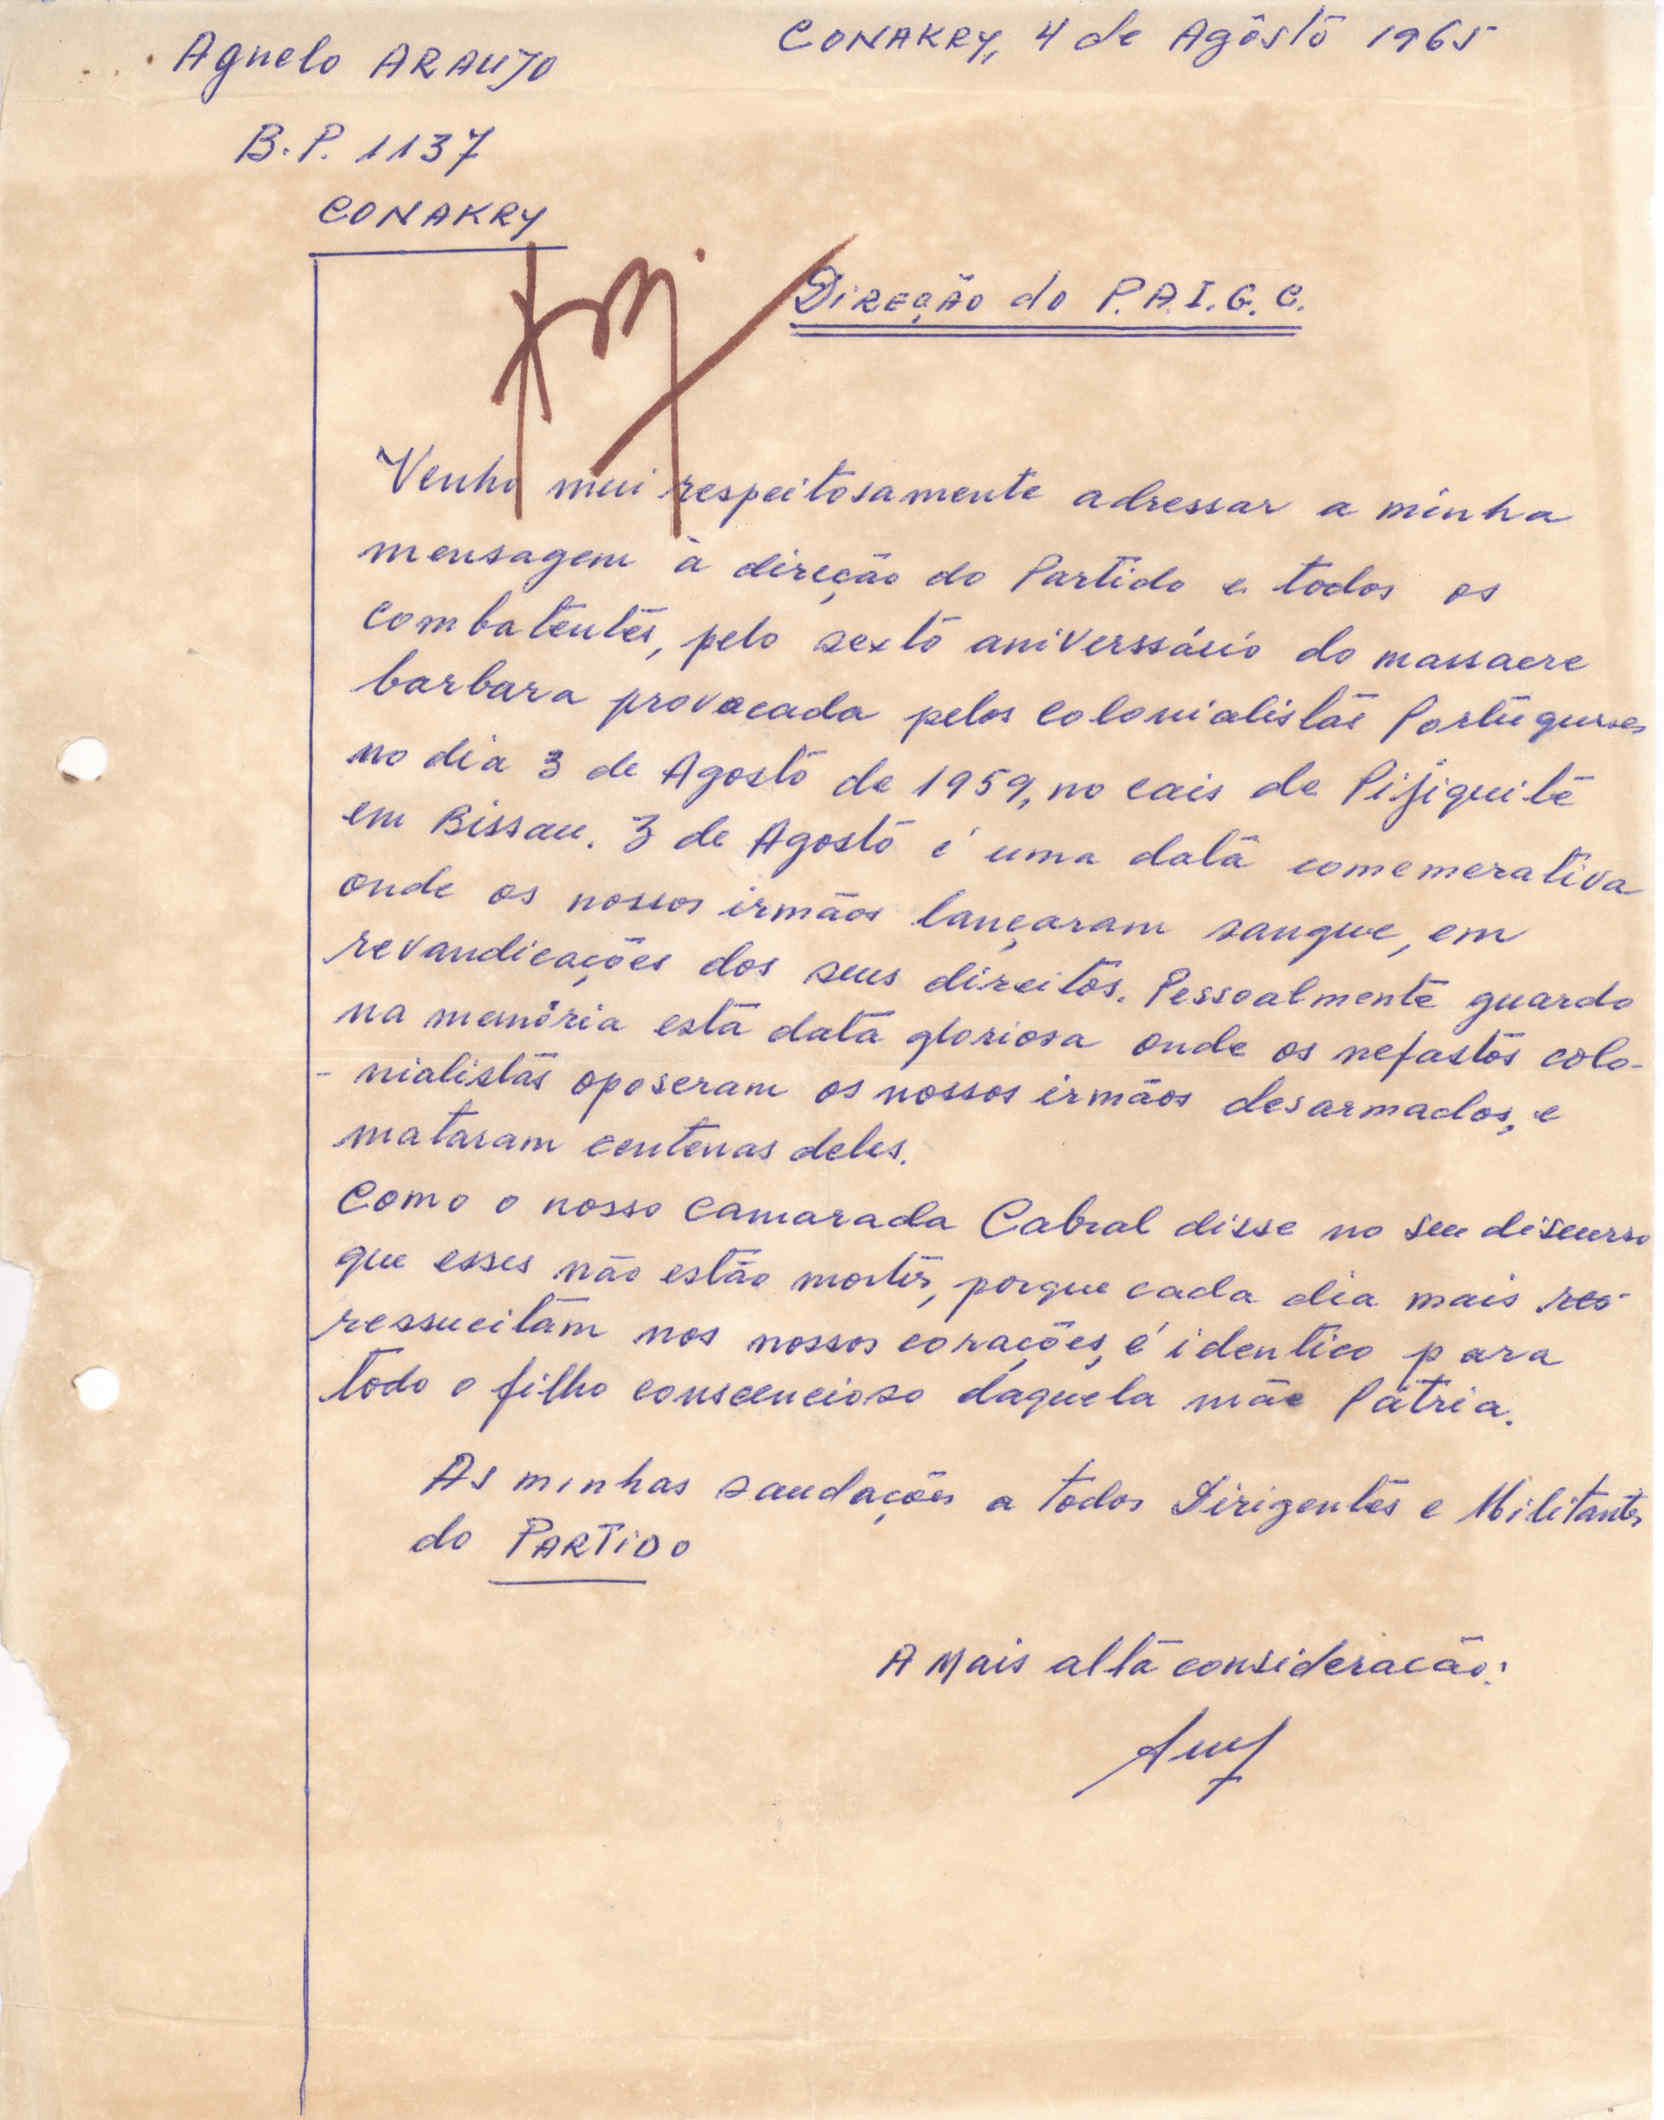 Agnelo ARAUJO
CONAKRY, 4 de Agôsto 1965
B.P. 1137
CONAKRY
DIREÇÃO do P.A.I.G.C.
Venho mui respeitosamente adressar a minha
mensagem à direção do Partido e todos os
combatentes, pelo sexto aniverssário do massacre
barbara provocada pelos colonialistas Portugueses
no dia 3 de Agosto de 1959, no cais de Pijiguite
em Bissau. 3 de Agosto é uma data comemerativa
onde os nossos irmãos lançaram sangue, em
revandicações dos seus direitos. Pessoalmente guardo
na memória esta data gloriosa onde os nefastos colo-
- nialistas oposeram os nossos irmãos desarmados, e
mataram centenas deles.
Como o nosso camarada Cabral disse no seu discurso
que esses não estão mortos, porque cada dia mais res-
ressucitam nos nossos corações, é identico para
todo o filho conscencioso daquela mãe Pátria.
As minhas saudações a todos Dirigentes e Militantes
do PARTIDO
A Mais alta consideracão: